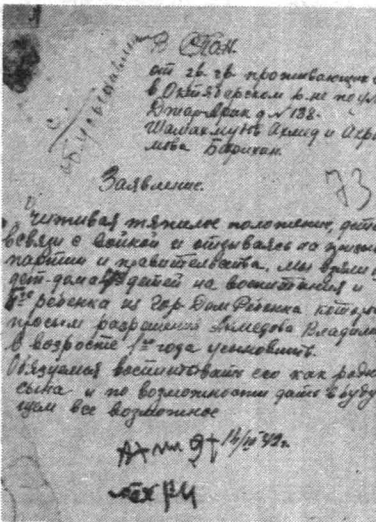 В ОПОН
от гр. гр. проживающих
в Октябрьском р-не по ул.
Джар-Арик д N 138.
Шамахмудов Ахмед и Акра-
мова Бахрихон.
Заявление.
73
Учитывая тяжелое положение, дет
в связи с войной и отзываясь на призыв
партии и правительства, мы взяли
дет-дома детей на воспитания и
ребенка из Гор. Дом Ребенка котор
просим разрешения Ахмедова Владими
в возросте 1го года усыновить.
Обязуемся воспитывать его как родно
сына и по возможности дать в буду
щем все возможное